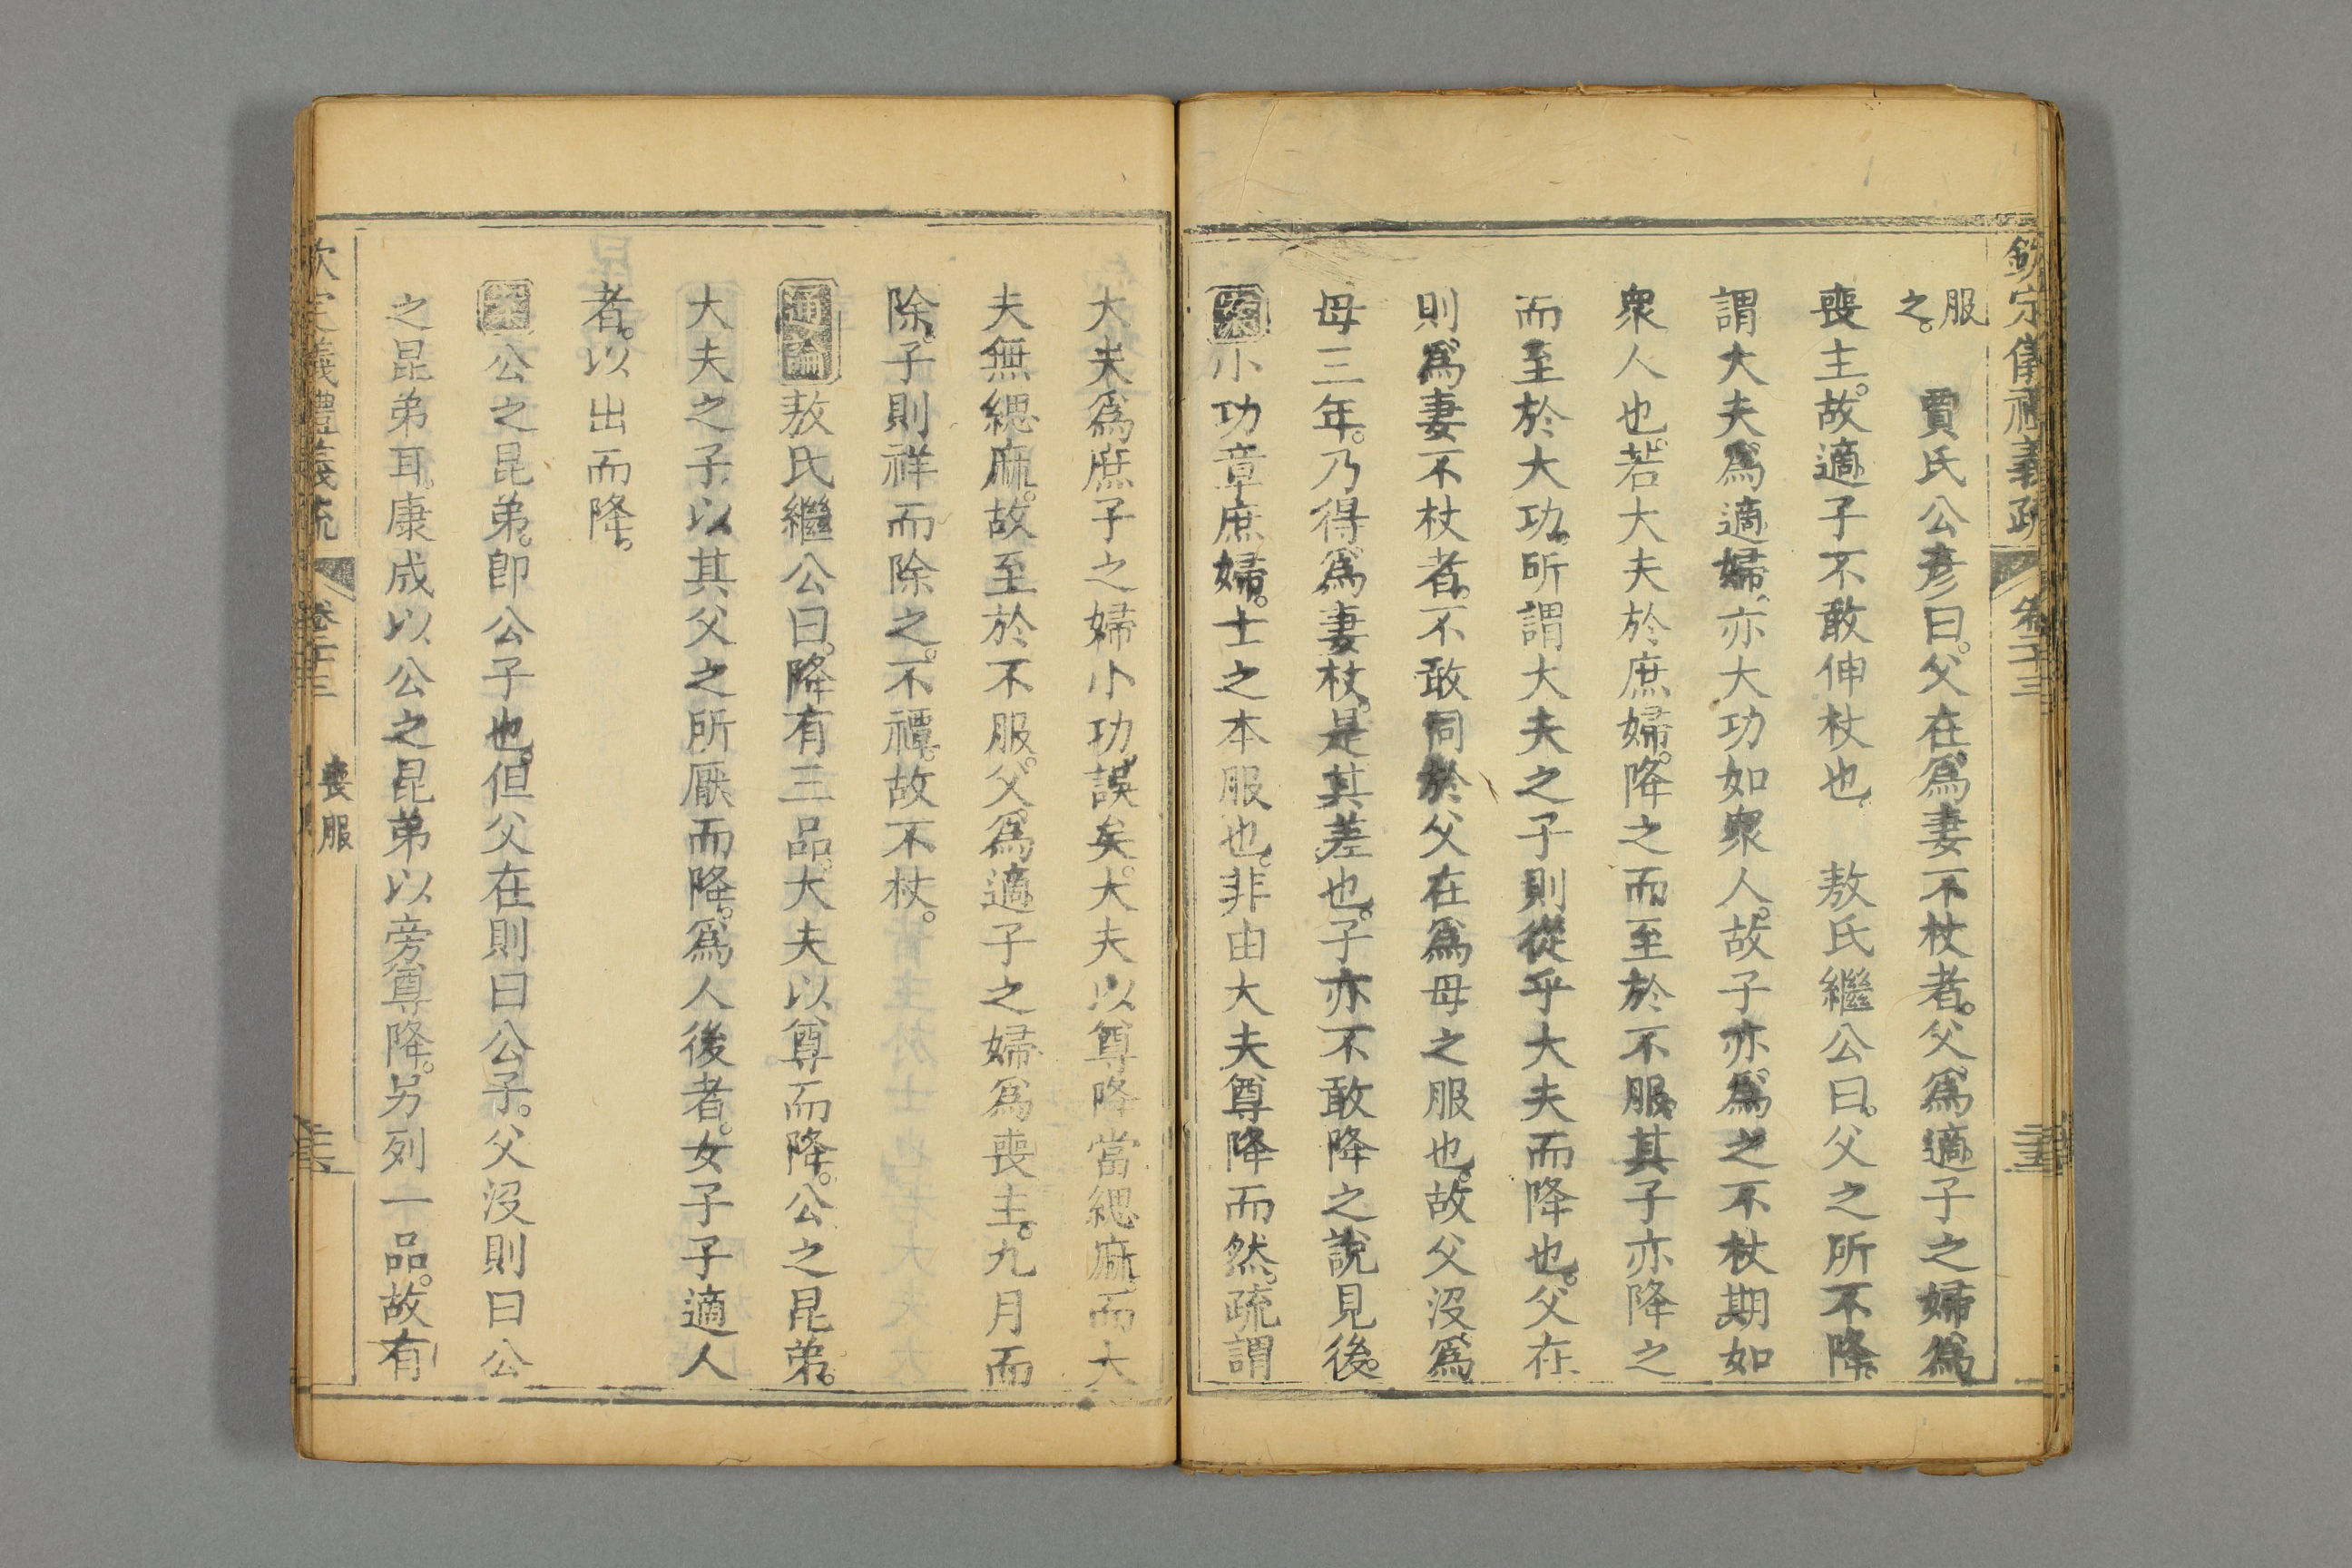 欽定儀禮義疏 卷二十三
服
之。 賈氏公彥曰。父在爲妻不杖者。父爲適子之婦爲
喪主。故適子不敢伸杖也。 敖氏繼公曰。父之所不降。
謂大夫爲適婦、亦大功如衆人。故子亦爲之不杖期如
衆人也。若大夫於庶婦。降之而至於不服。其子亦降之
而至於大功。所謂大夫之子則從乎大夫而降也。父在
則爲妻不杖者。不敢同於父在爲母之服也。故父沒爲
母三年。乃得爲妻杖。是其差也。子亦不敢降之說見後。
案小功章庶婦。士之本服也。非由大夫尊降而然。疏謂
大夫爲庶子之婦小功。誤矣。大夫以尊降當緦麻。而大
夫無緦麻。故至於不服。父爲適子之婦爲喪主。九月而
除。子則祥而除之。不禫。故不杖。
通論敖氏繼公曰。降有三品。大夫以尊而降。公之昆弟。
大夫之子以其父之所厭而降。爲人後者。女子子適人
者。以出而降。
案公之昆弟。卽公子也。但父在則曰公子。父沒則曰公
之昆弟耳。康成以公之昆弟以旁尊降。另列一品。故有
欽定儀禮義疏 卷二十三 喪服